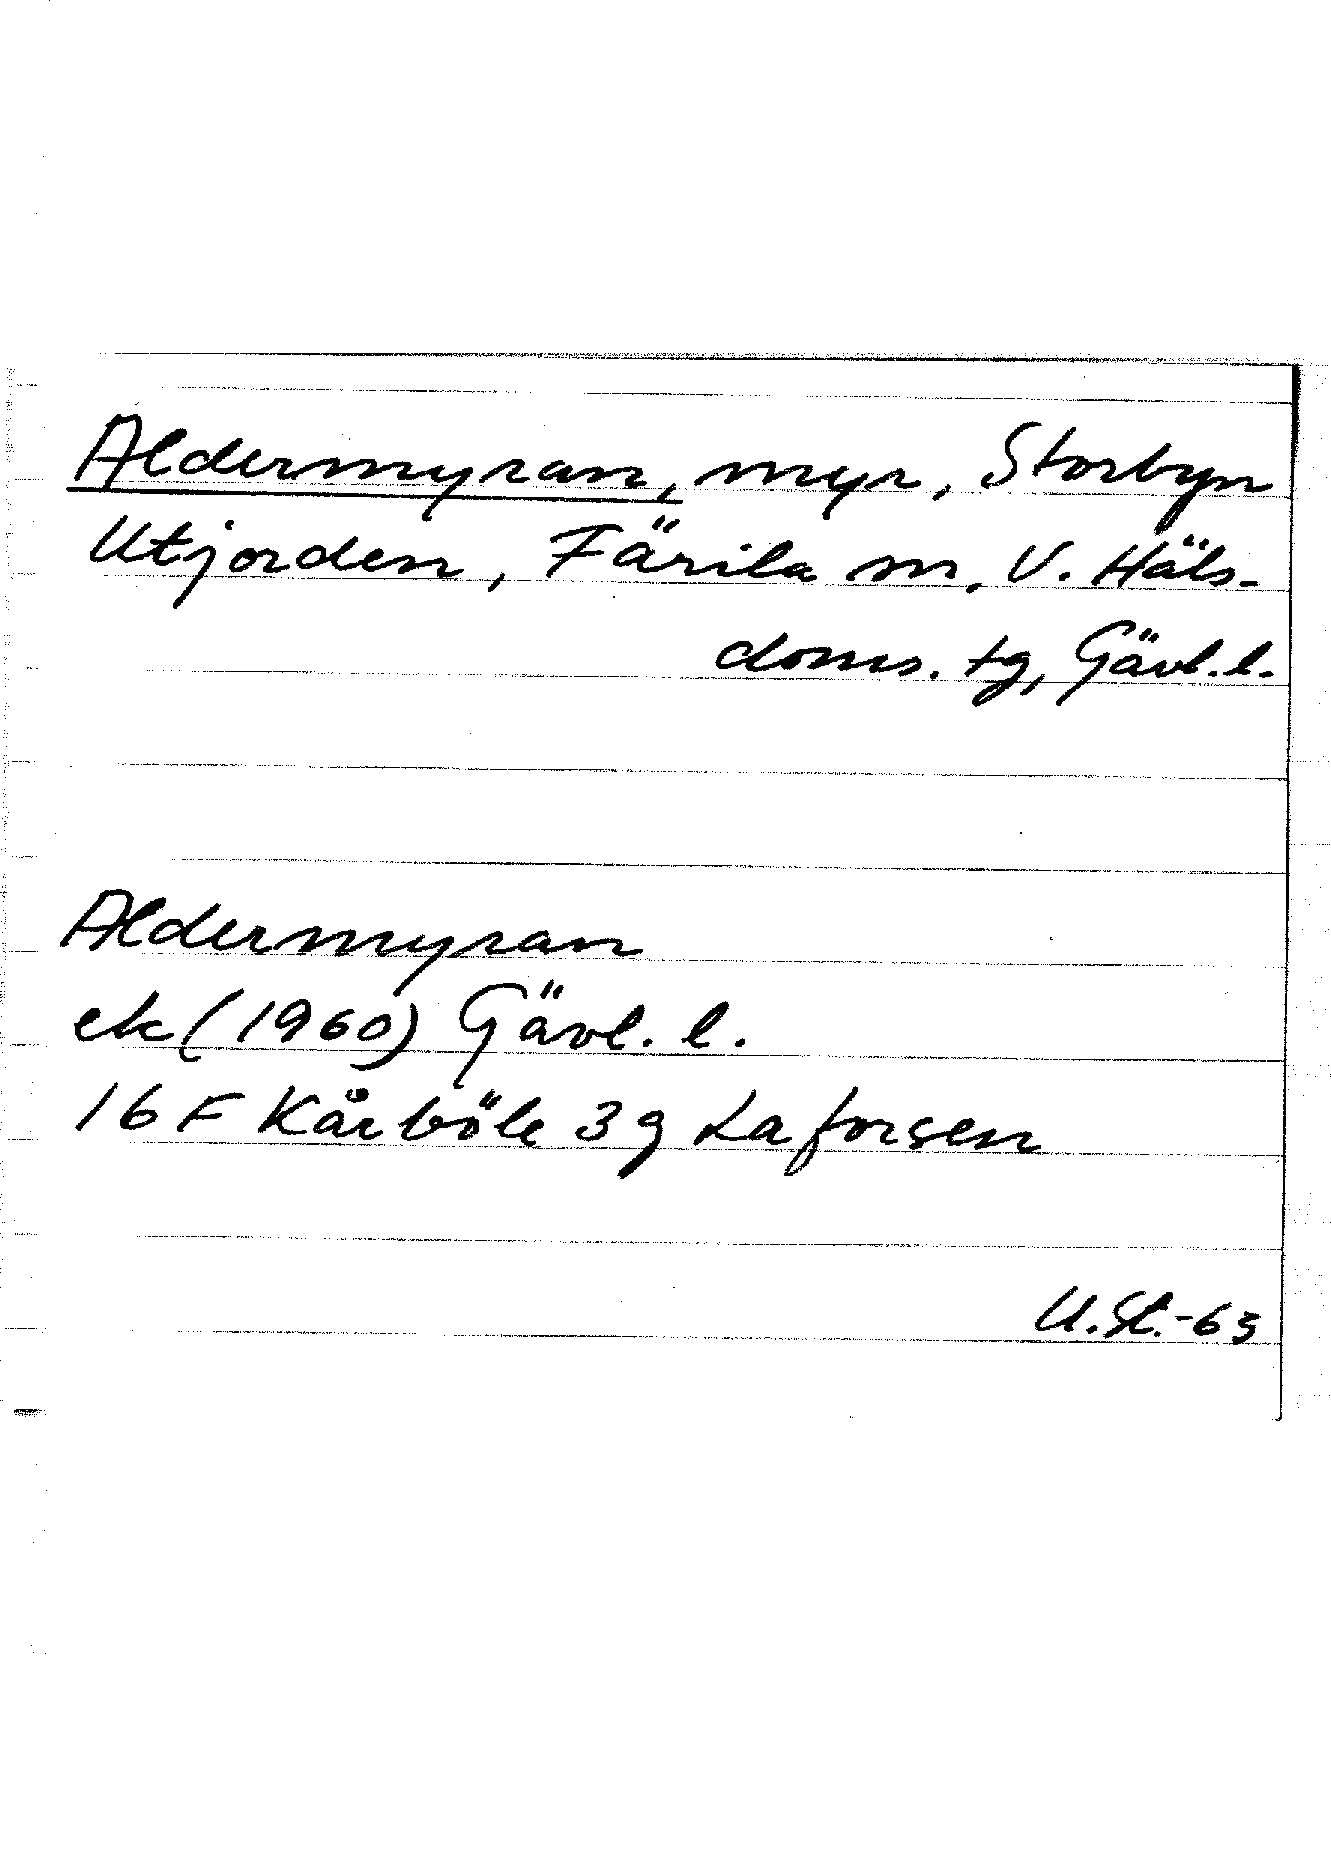 Aldermyran, myr, Storbyn
Utjorden, Färila sn, V. Häls.
doms. tg, Gävl. l.
Aldermyran
ek (1960) Gävl. l.
16 F Kårböle 3 g Laforsen
U. St. -65